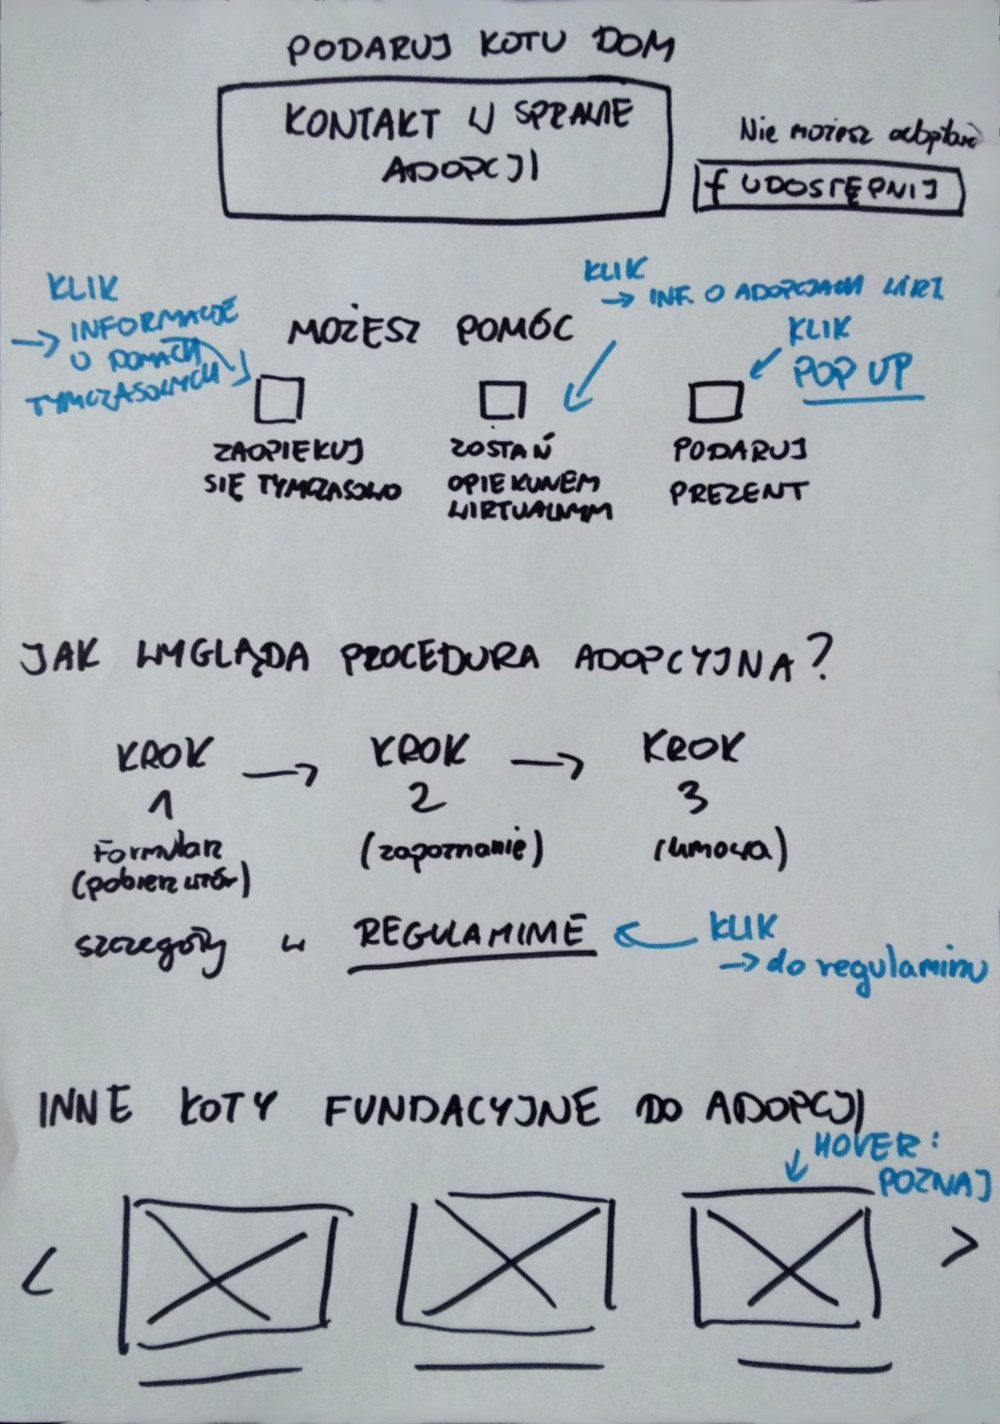 PODARUJ KOTU DOM
KONTAKT W SPRAWIE
ADOPCJI
Nie możesz adoptować
f UDOSTĘPNIJ
KLIK
→ INFORMACJE
O DOMACH
TYMCZASOWYCH
KLIK
→ INF. O ADOPCJACH WIRT.
MOŻESZ POMÓC
KLIK
POP UP
ZAOPIEKUJ
SIĘ TYMCZASOWO
ZOSTAŃ
OPIEKUNEM
WIRTUALNYM
PODARUJ
PREZENT
JAK WYGLĄDA PROCEDURA ADOPCYJNA?
KROK → KROK → KROK
1 2 3
Formularz (zapoznanie) (umowa)
(pobierz wzór)
szczegóły w REGULAMINIE
KLIK
→ do regulaminu
INNE KOTY FUNDACYJNE DO ADOPCJI
HOVER:
POZNAJ
< >